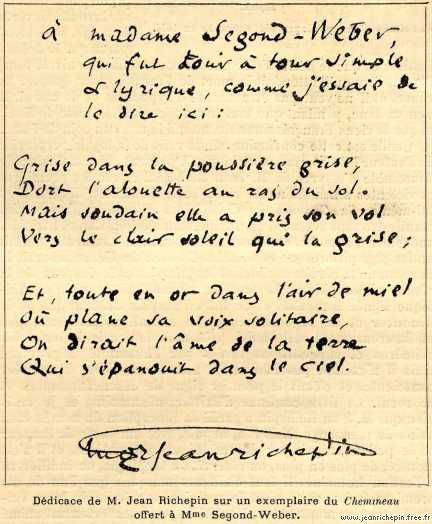 à madame Segond-Weber,
qui fut tour à tour simple
& lyrique, comme j'essaie de
le dire ici :
Grise dans la poussière grise,
Dort l'alouette au ras du sol.
Mais soudain elle a pris son vol
Vers le clair soleil qui la grise ;
Et, toute en or dans l'air de miel
Où plane sa voix solitaire,
On dirait l'âme de la terre
Qui s'épanouit dans le ciel.
jeanrichepin
Dédicace de M. Jean Richepin sur un exemplaire du Chemineau
offert à Mme Segond-Weber.
www.jeanrichepin.free.fr